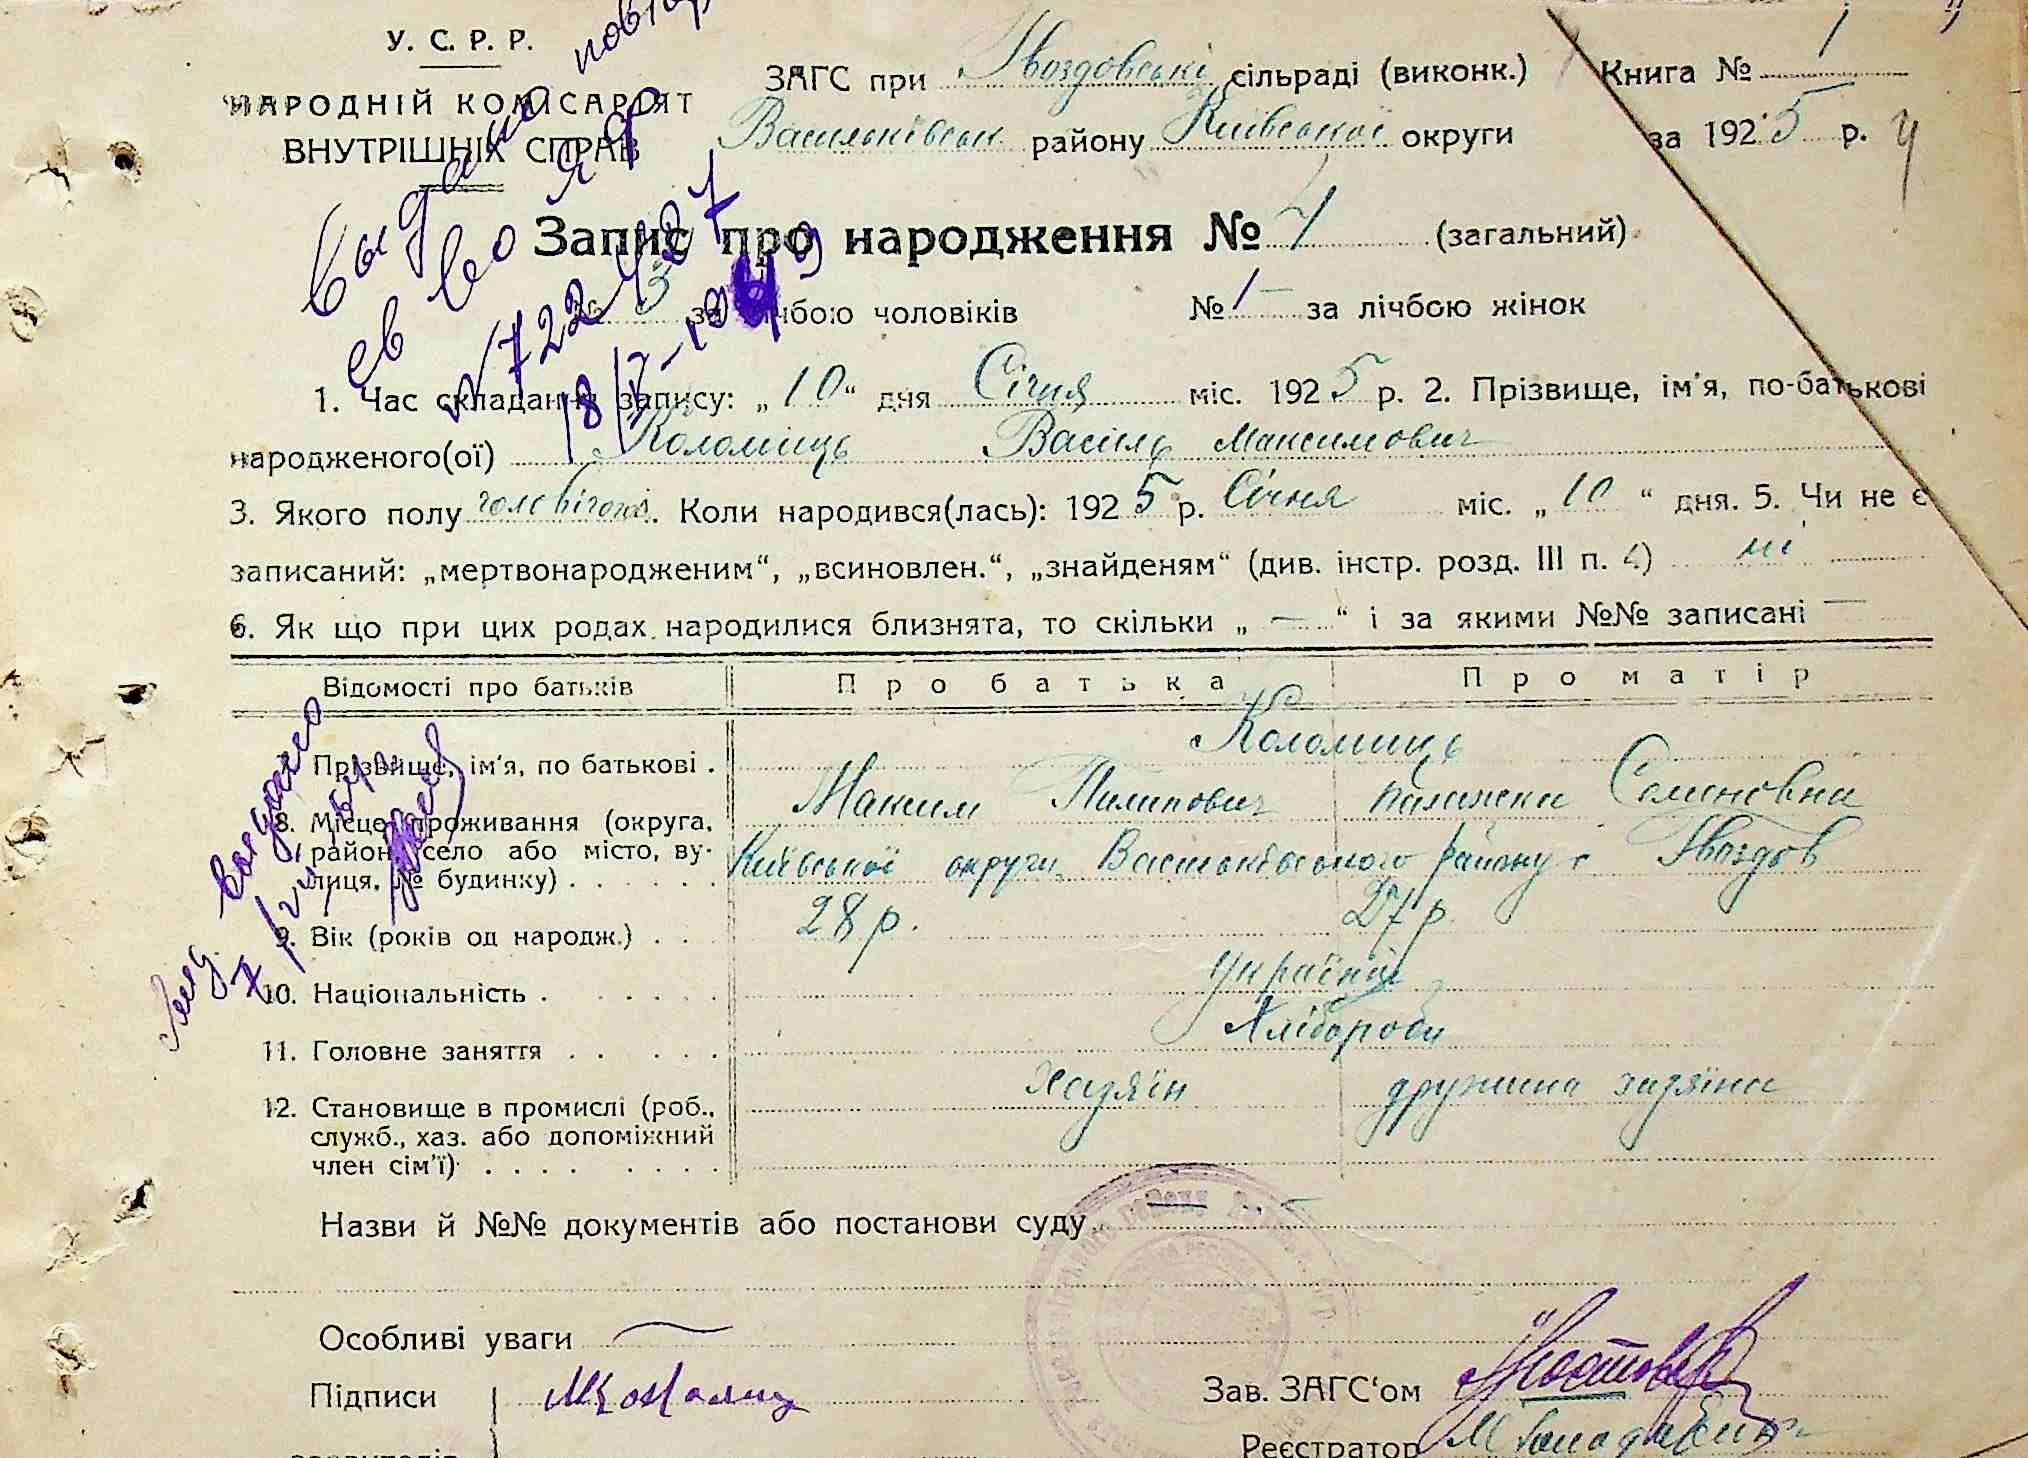 У. С. Р. Р.
НАРОДНІЙ КОМІСАРІЯТ
ВНУТРІШНІХ СПРАВ
ЗАГС при Гвоздовські сільраді (виконк.)
Васильківськ району Київської округи
Книга № 1
за 1925 р.
4
Запис про народження № 4 (загальний)
№ 3 за лічбою чоловіків № 1 — за лічбою жінок
выдано повтор
св во ЯФ
№ 722487
18/V-1949
1. Час складання запису: „10“ дня Січня міс. 1925 р. 2. Прізвище, ім'я, по-батькові
народженого(ої) Коломієць Василь Максимович
3. Якого полу чоловічого. Коли народився(лась): 1925 р. Січня міс. „10“ дня. 5. Чи не є
записаний: „мертвонародженим“, „всиновлен.“, „знайденям“ (див. інстр. розд. III п. 4) ні
6. Як що при цих родах народилися близнята, то скільки „ — “ і за якими №№ записані —
Відомості про батьків Про батька Про матір
7. Прізвище, ім'я, по батькові . Коломиць
Максим Пилипович Палажка Семиновна
8. Місце проживання (округа,
район, село або місто, ву-
лиця, № будинку) . . . . . Київської округи Васильківського району с Гвоздов
9. Вік (років од народж.) . . 28 р. 27 р.
10. Національність . . . . . Українці
11. Головне заняття . . . . . Хлібороби
12. Становище в промислі (роб.,
служб., хаз. або допоміжний
член сім'ї) . . . . . . . . Хазяїн дружина хазяїна
Назви й №№ документів або постанови суду —
Особливі уваги —
Підписи
Зав. ЗАГС'ом
Реєстратор